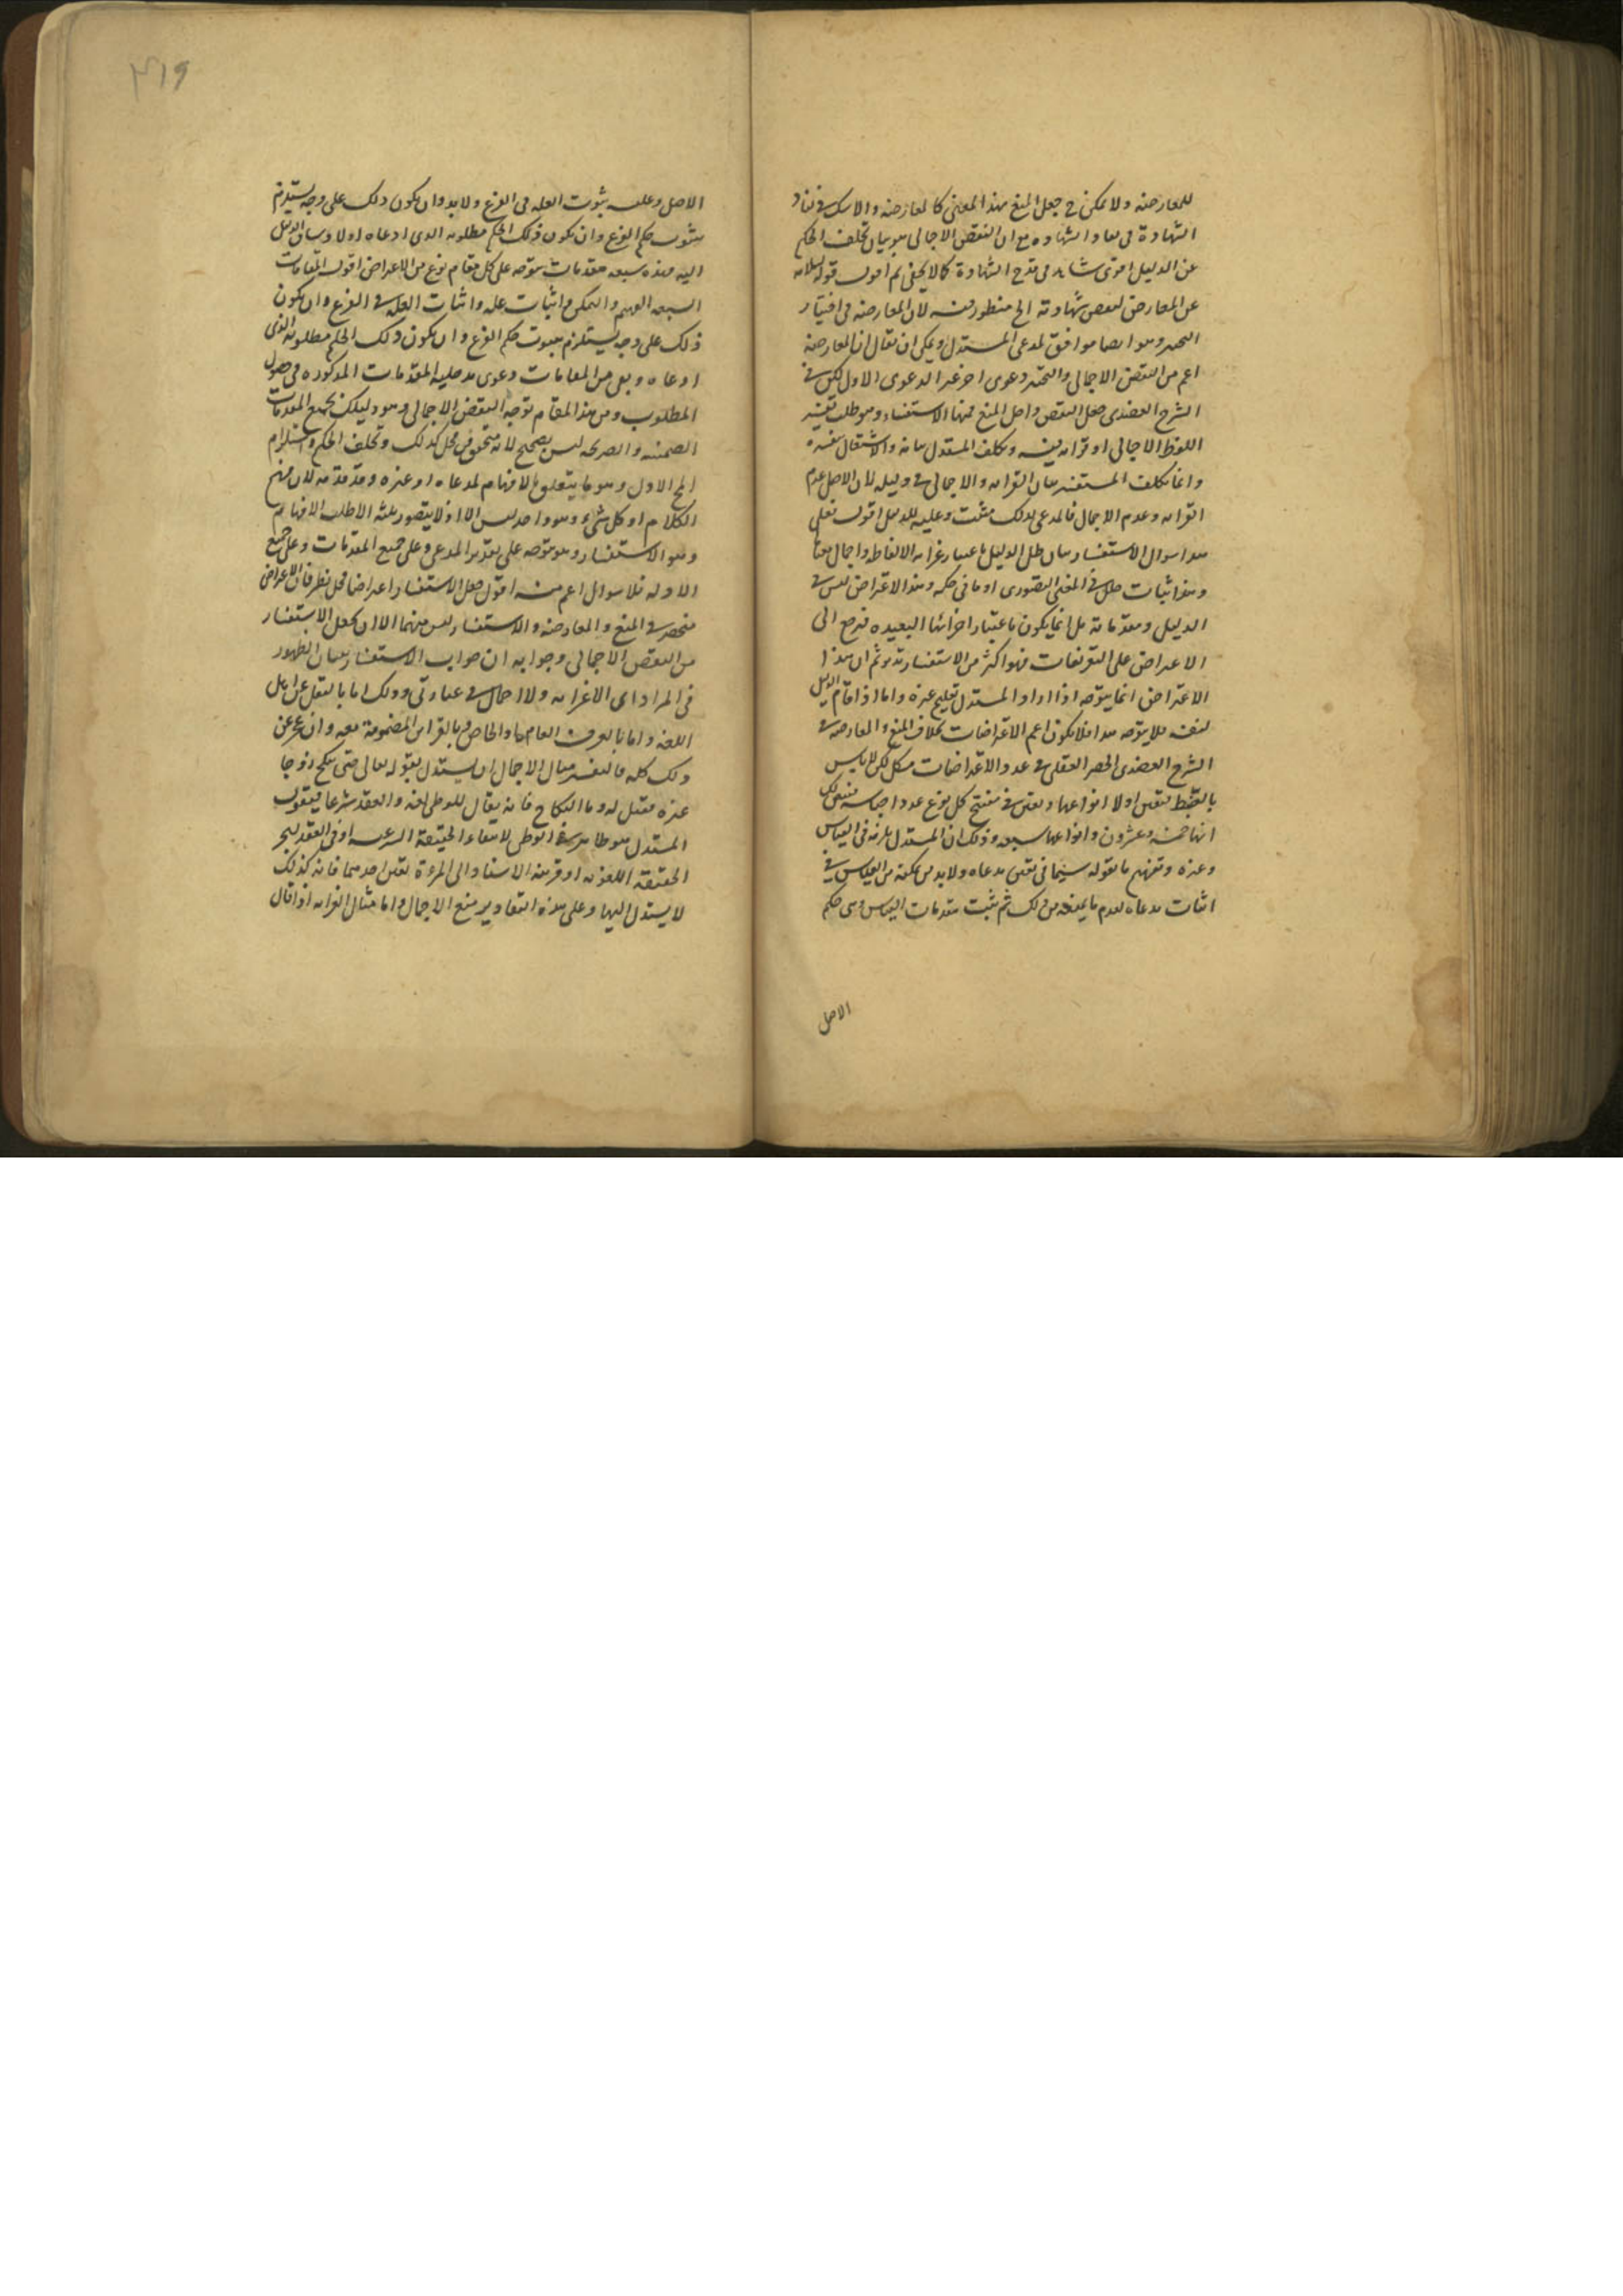 للمعارضه ولا يمكن في جعل المنع بهذا المعنى كالمعارضه والاسك في نفاد
الشهادة في معاد الشهاده مع ان النقض الاجمالى هو بيان تخلف الحكم
عن الدليل اقوى شاهد في قدح الشهادة كما لا يخفى ثم اقول قوله
عن المعارض لنقض شهادته الخ منظور فيه لان المعارضه في اختيار
وهو ايضا موافق لمدعى المستدل ويمكن ان يقال ان المعارضه
اعم من النقض الاجمالى دعوى اخر غير الدعوى الاول لكن في
الشرح العضدى جعل النقض داخل المنع فمنها الاستفسار وهو طلب تفسير
اللفظ لاجمال او غرابه فيه وتكلف المستدل بيانه والاشتغال بتفسيره
وانما تكلف المستفسر بيان الغرابه والاجمال في دليله لان الاصل عدم
الغرابه وعدم الاجمال فالمدعى لذلك مثبت وعليه الدليل اقول فعلى
هذا سوال الاستفسار بيان خلل الدليل باعتبار غرابه الالفاظ واجمال معنا
وهو اثبات خلل في المعنى التصورى او ما في حكمه وهذا الاعتراض ليس في
الدليل ومقدماته بل انما يكون باعتبار اجزائها البعيده فرجع الى
الاعتراض على التعريفات فهو اكثر من الاستفسار تدبر ثم ان هذا
الاعتراض انما يتوجه اذا اراد المستدل تعليم غيره واما اذا اقام الدليل
لنفسه فلا يتوجه هذا فلا يكون اعم الاعتراضات بخلاف المنع والمعارضه في
الشرح العضدى الحصر العقلى في عدد الاعتراضات مشكل لكن لا باس
بالضبط فنقول اولا انواعها ونعين في مفتتح كل نوع عدد اجناسه
انها خمسه وعشرون وانواعها سبعه وذلك ان المستدل يلزمه في القياس
وغيره وتفهيم ما يقوله سيما في تعيين مدعاه ولا بد من تمكنه من القياس في
اثبات مدعاه لعدم ما يمنعه من ذلك ثم يثبت مقدمات القياس وهى حكم
الاصل
٣١٩
الاصل وعلته وثبوت العله في الفرع ولا بد وان يكون ذلك على وجه يستلزم
ثبوت حكم الفرع وان يكون ذلك الحكم مطلوبه الذى ادعاه اولا وساق الدليل
اليه فهذه سبعه مقدمات يتوجه على كل مقام نوع من الاعتراض اقول المقامات
السبعه التفهيم والتمكن واثبات عله واثبات العله في الفرع وان يكون
ذلك على وجه يستلزم ثبوت حكم الفرع وان يكون ذلك الحكم مطلوبه الذى
ادعاه وبقى من المقامات دعوى مدخليه المقدمات المذكوره في حصول
المطلوب ومن هذا المقام توجه النقض الاجمالى وهو دليلك بجميع المقدمات
الضمنيه والصريحه ليس بصحيح لانه متحقق في محل كذلك وتخلف الحكم واستلزام
المح الاول وهو ما يتعلق بالافهام لمدعاه او غيره وقد قدمه لان فهم
الكلام اول كل شئ وهو واحد ليس الا اذ لا يتصور ثمه الا طلب الافهام
وهو الاستفسار وهو متوجه على تقدير المدعى وعلى جميع المقدمات وعلى جميع
الادله فلا سوال اعم منه اقول جعل الاستفسار اعتراضا محل نظر فان الاعتراض
منحصر في المنع والمعارضه والاستفسار ليس منهما الا ان يجعل الاستفسار
من النقض الاجمالى وجوابه ان جواب الاستفسار ببيان الظهور
في المراد اى لا غرابه ولا اجمال في عبارتى وذلك اما بالنقل عن اهل
اللغه واما بالعرف العام او الخاص او بالقراين المضمومة معه وان عجز عن
ذلك كله فالتفسير مثال الاجمال ان يستدل بقوله تعالى حتى تنكح زوجا
غيره فيقيل له وما النكاح فانه يقال للوطى لغه والعقد شرعا فيقول
المستدل هو ظاهر في الوطى لانتفاء الحقيقة الشرعيه او في العقد لهجر
الحقيقة اللغويه او قرينه الاسناد الى المرءة تعين احدهما فانه كذلك
لا يسند اليها وعلى هذه التقادير منع الاجمال واما مثال الغرابه اذا قال